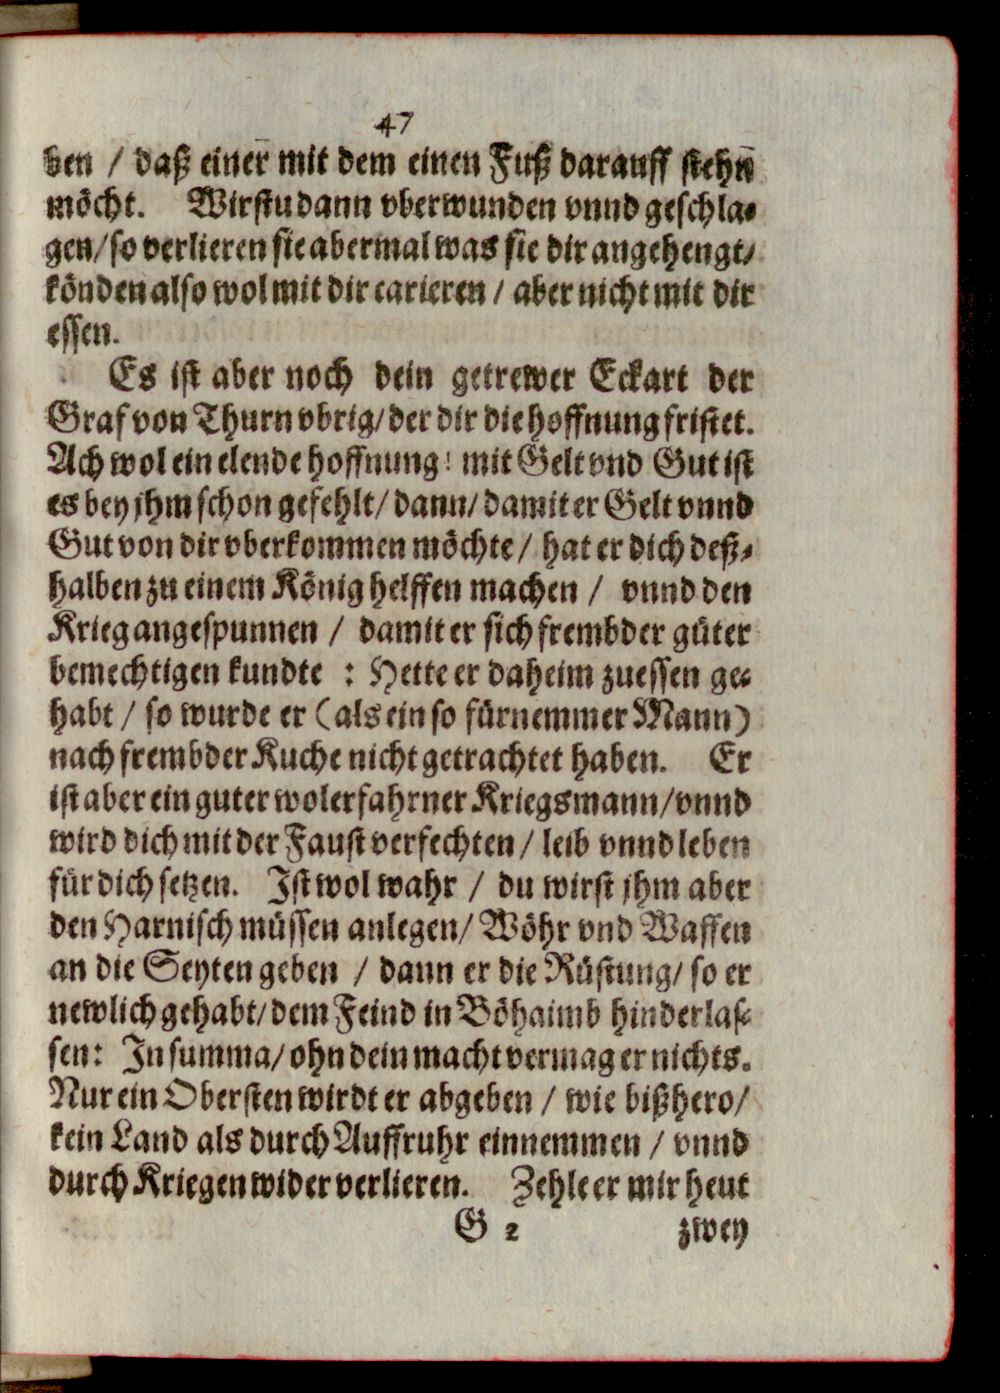 47
ben / daß einer mit dem einen Fuß darauff stehn
möcht. Wirstu dann vberwunden vnnd geschla⸗
gen/ so verlieren sie abermal was sie dir angehengt/
könden also wol mit dir carieren / aber nicht mit dir
essen.
Es ist aber noch dein getrewer Eckart der
Graf von Thurn vbrig/ der dir die hoffnung fristet.
Ach wol ein elende hoffnung! mit Gelt vnd Gut ist
es bey jhm schon gefehlt/ dann/ damit er Gelt vnnd
Gut von dir vberkommen möchte / hat er dich deß⸗
halben zu einem König helffen machen / vnnd den
Krieg angespunnen / damit er sich frembder güter
bemechtigen kundte : Hette er daheim zuessen ge⸗
habt / so wurde er (als ein so fürnemmer Mann)
nach frembder Kuche nicht getrachtet haben. Er
ist aber ein guter wolerfahrner Kriegsmann/ vnnd
wird dich mit der Faust verfechten / leib vnnd leben
für dich setzen. Ist wol wahr / du wirst jhm aber
den Harnisch müssen anlegen/ Wöhr vnd Waffen
an die Seyten geben / dann er die Rüstung/ so er
newlich gehabt/ dem Feind in Böhaimb hinderlas⸗
sen: In summa/ ohn dein macht vermag er nichts.
Nur ein Obersten wirdt er abgeben / wie bißhero/
kein Land als durch Auffruhr einnemmen / vnnd
durch Kriegen wider verlieren. Zehle er mir heut
G 2 zwey